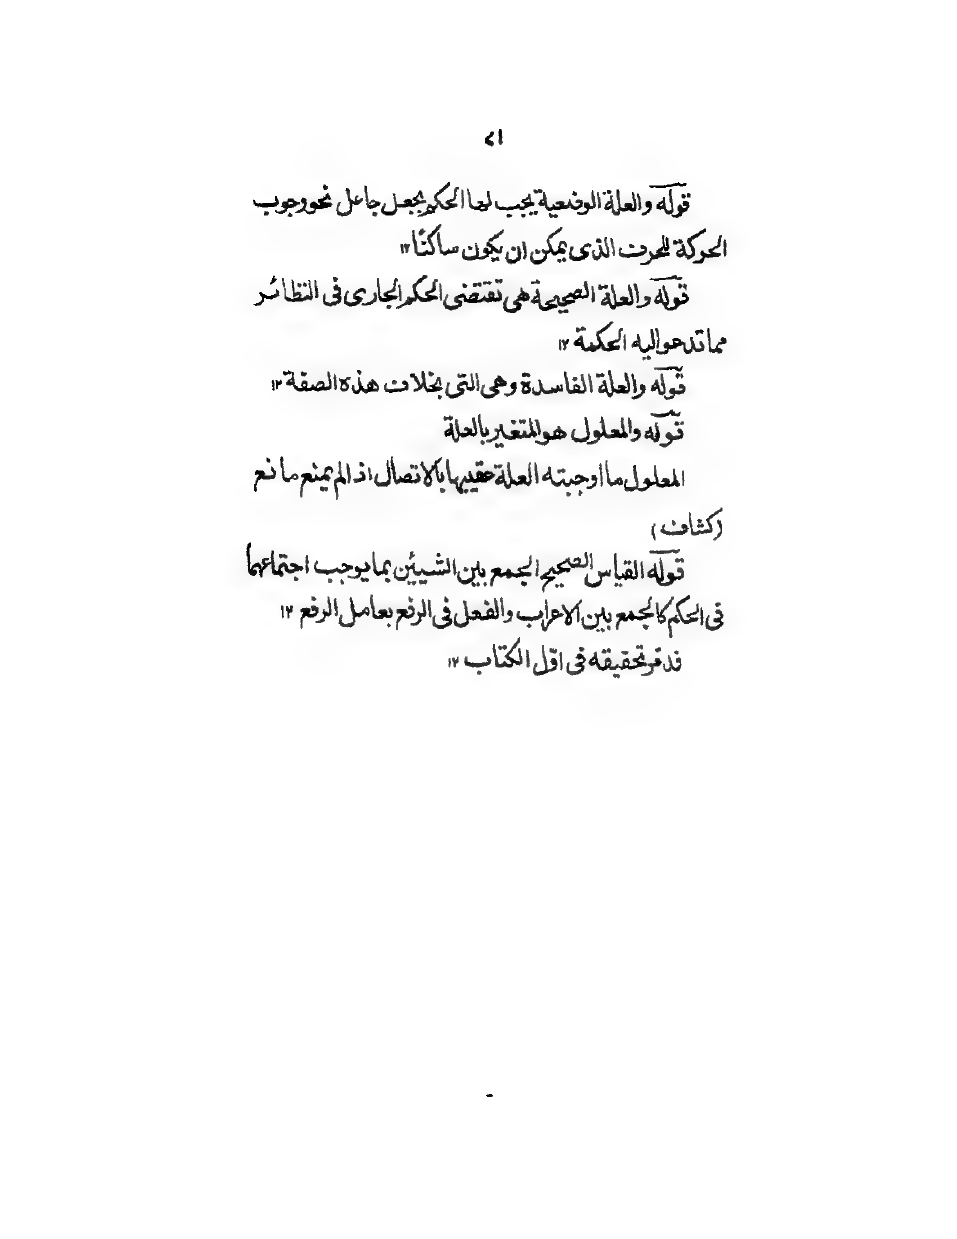 ۲۱
قوله والعلة الوضعية يجب لها الحكم بجعل جاعل نحو وجوب
الحركة للحرف الذى يمكن ان يكون ساكنًا ۱۲
قوله والعلة الصحيحة هى تقتضى الحكم الجارى فى النظائر
مما تدعو اليه الحكمة ۱۲
قوله والعلة الفاسدة وهى التى بخلاف هذه الصفة ۱۲
قوله والمعلول هو المتغير بالعلة
المعلول ما اوجبته العلة عقيبها بالاتصال اذ الم يمنع مانع
(كشاف)
قوله القياس الصحيح الجمع بين الشيئين بما يوجب اجتماعهما
فى الحكم كالجمع بين الاعراب والفعل فى الرفع بعامل الرفع ۱۲
قد مر تحقيقه فى اوّل الكتاب ۱۲